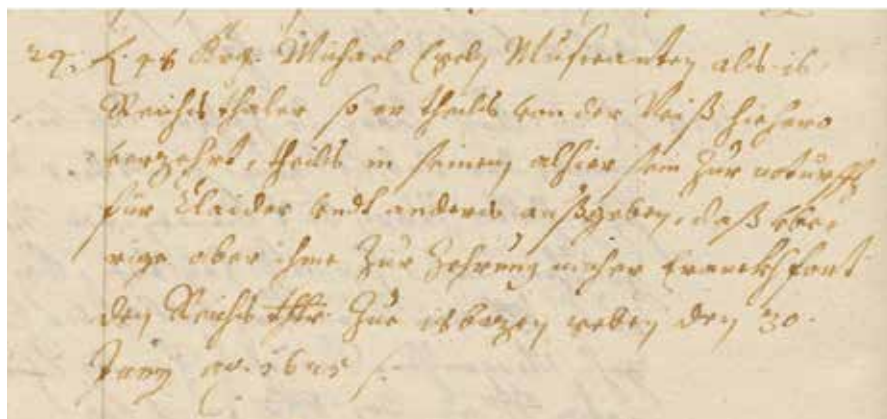 29.
Michael Musicanten alß 16
Reichsthaler so er theilß von der Reiß hiehero
verzehrt, theilß in seinem alhier sein zur notturfft
für Claider vndt anderß außgeben, daß vbe
rige aber ihme zur Zehrung nacher Franckhfort
den Reichs thlr. Zue bazen geben den 30.
Juny ao.